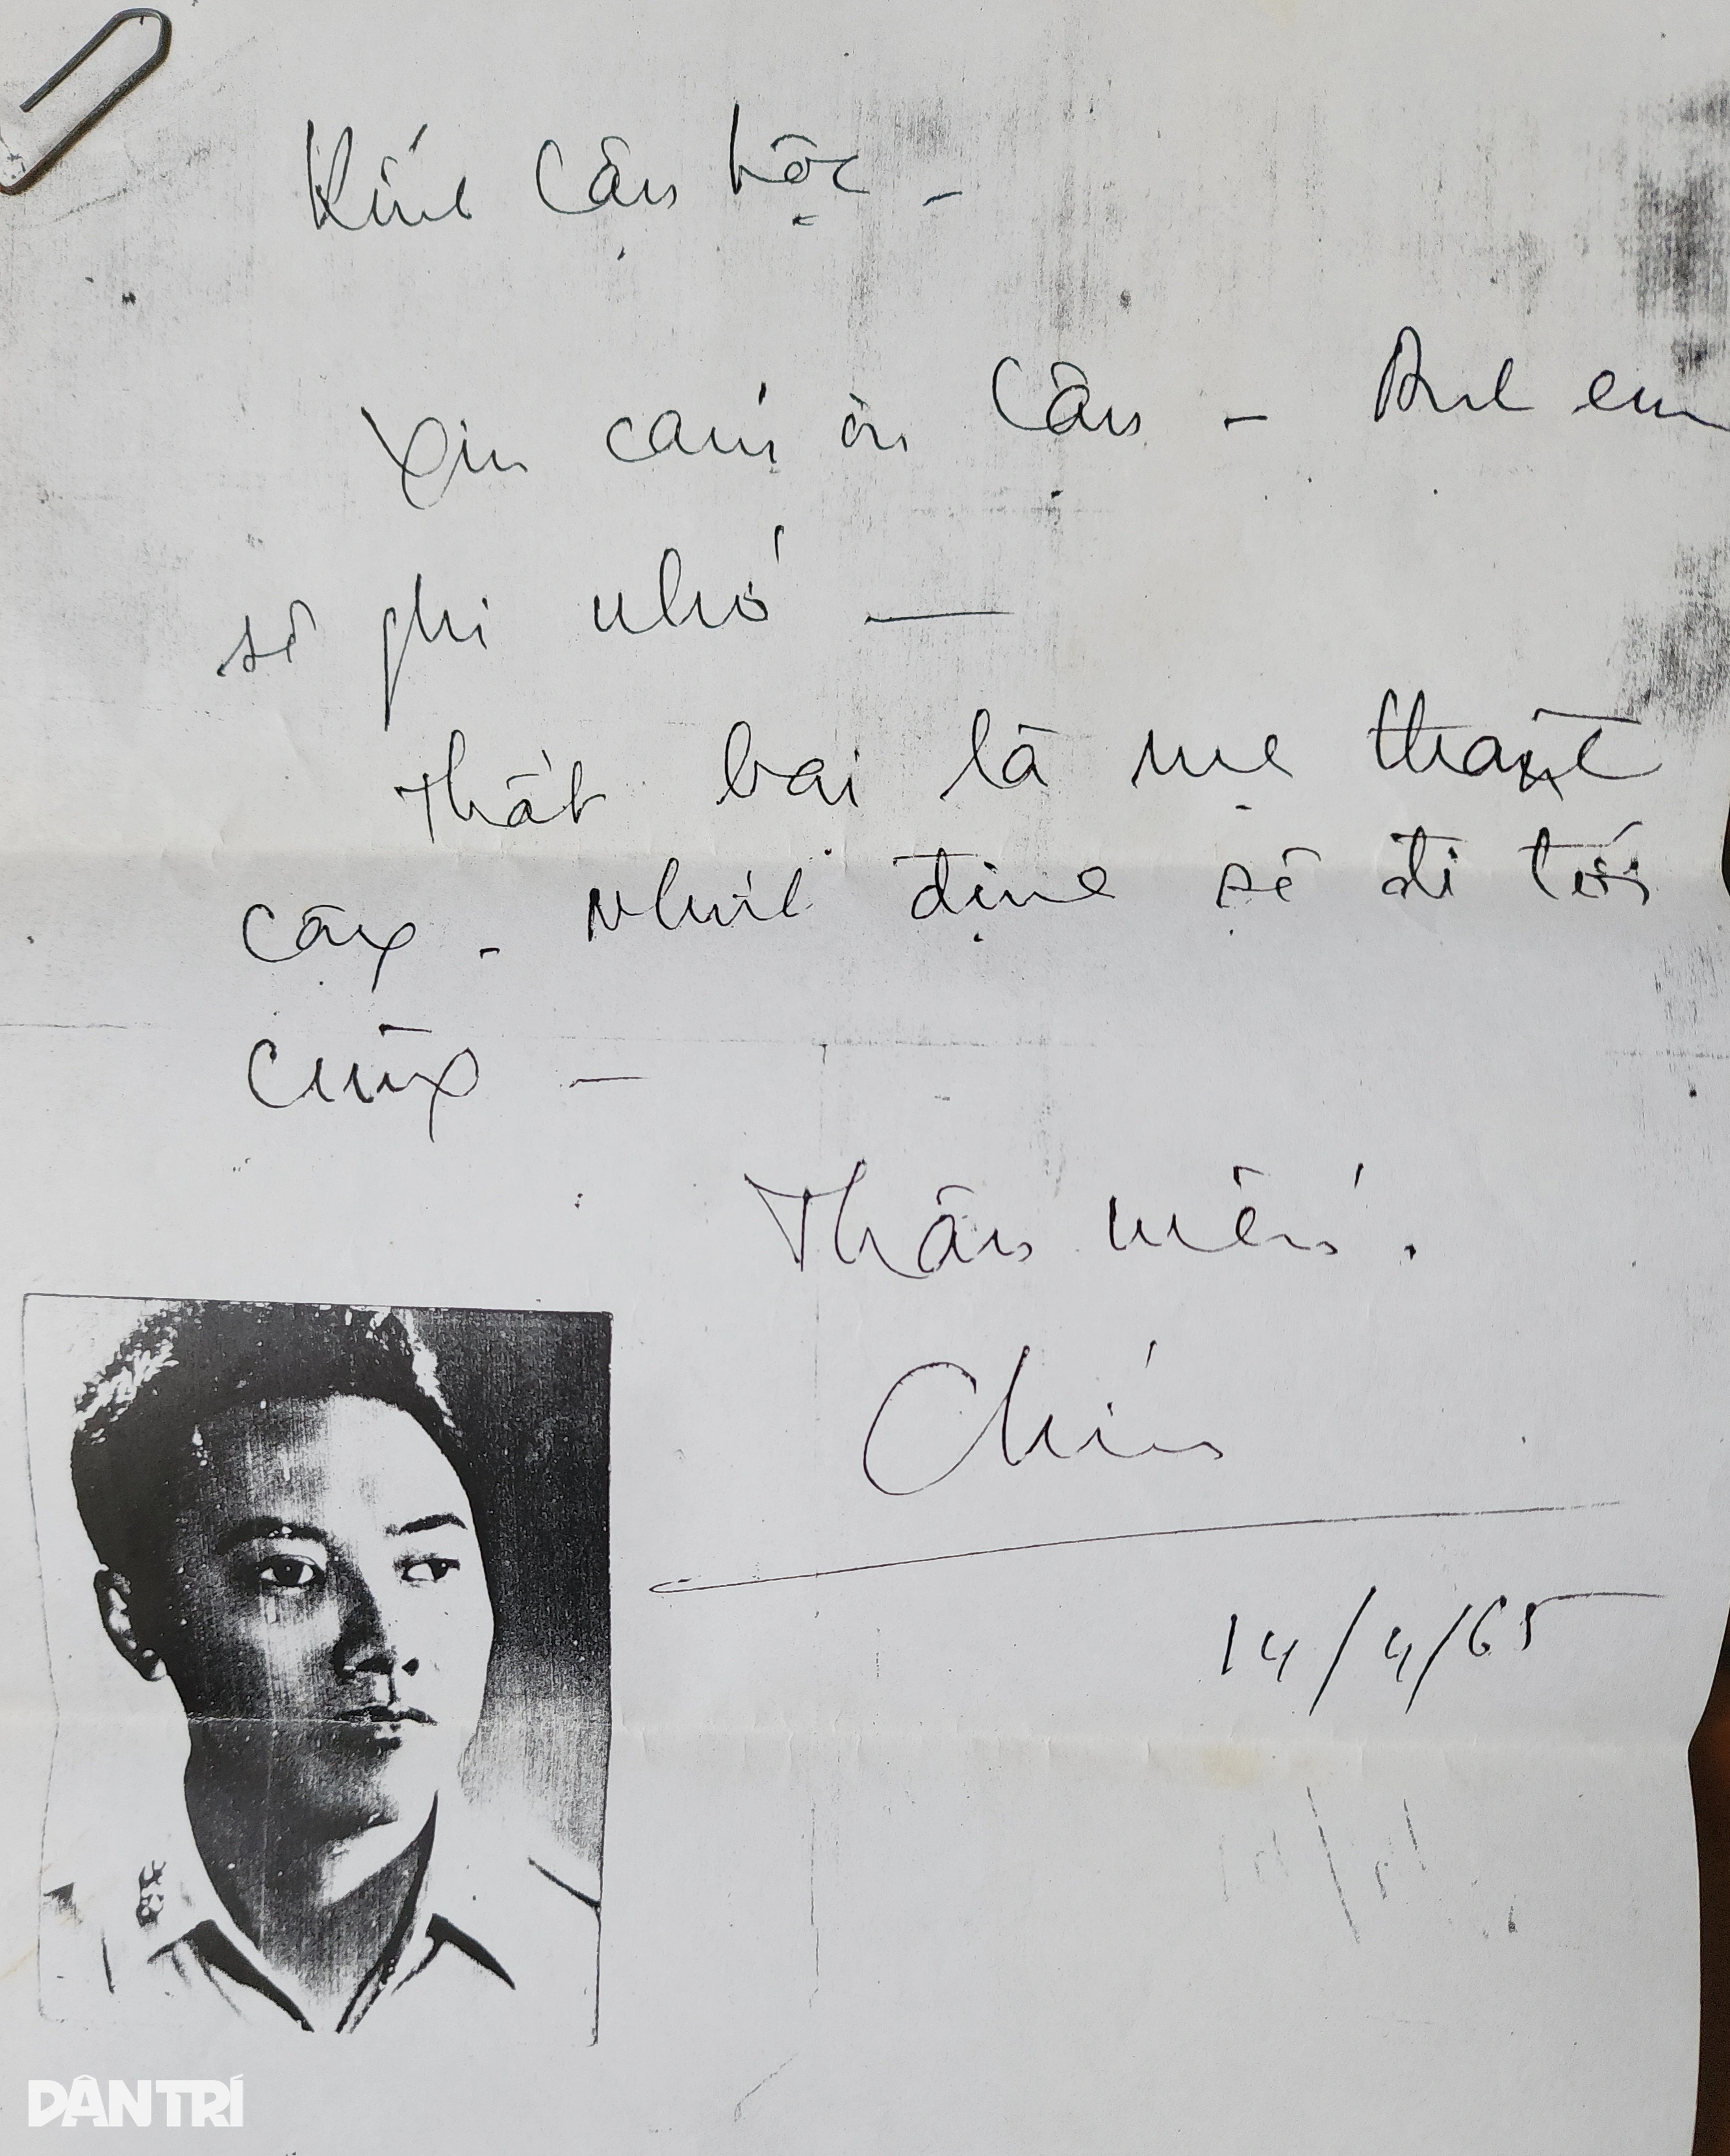 Kính Cậu Lộc -
Xin cám ơn Cậu - Anh em
sẽ ghi nhớ —
Thất bại là mẹ thành
công - Nhất định sẽ đi tới
cùng —
Thân mến.
Chín
14/4/65
DÂN TRÍ